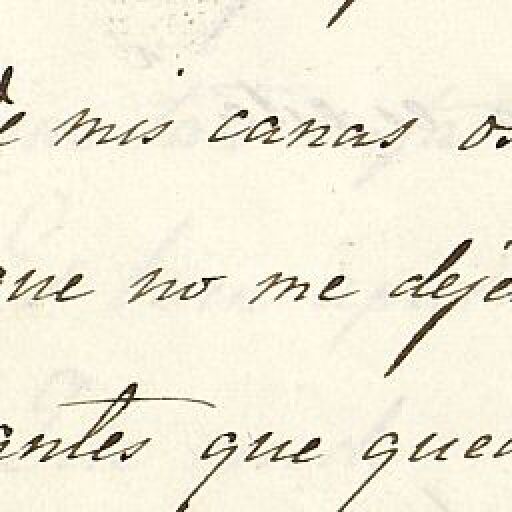 de mis canas os
que no me dejé
antes que qued